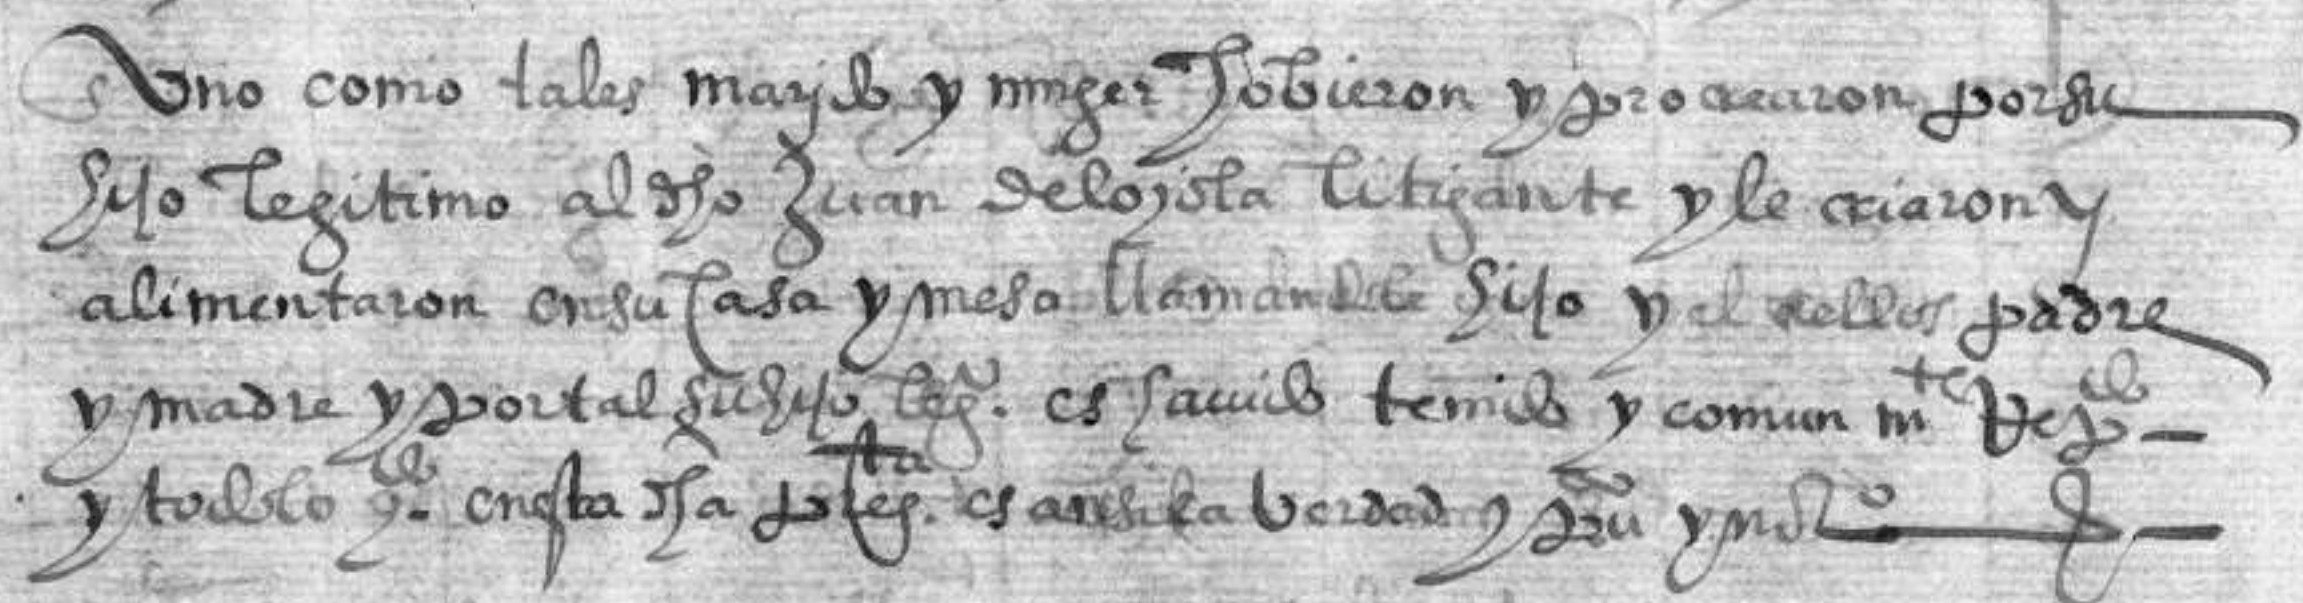 Uno como tales marido y muger hobieron y procrearon por su
hijo legitimo al dho Juan de loyola litigante y le criaron y
alimentaron en su casa y mesa llamandole hijo y el a ellos padre
y madre y por tal su hijo legº. es havido tenido y comun mte Repdo
y todo lo qdo. en esta dha pregta. es ansi la verdad y puco y noto